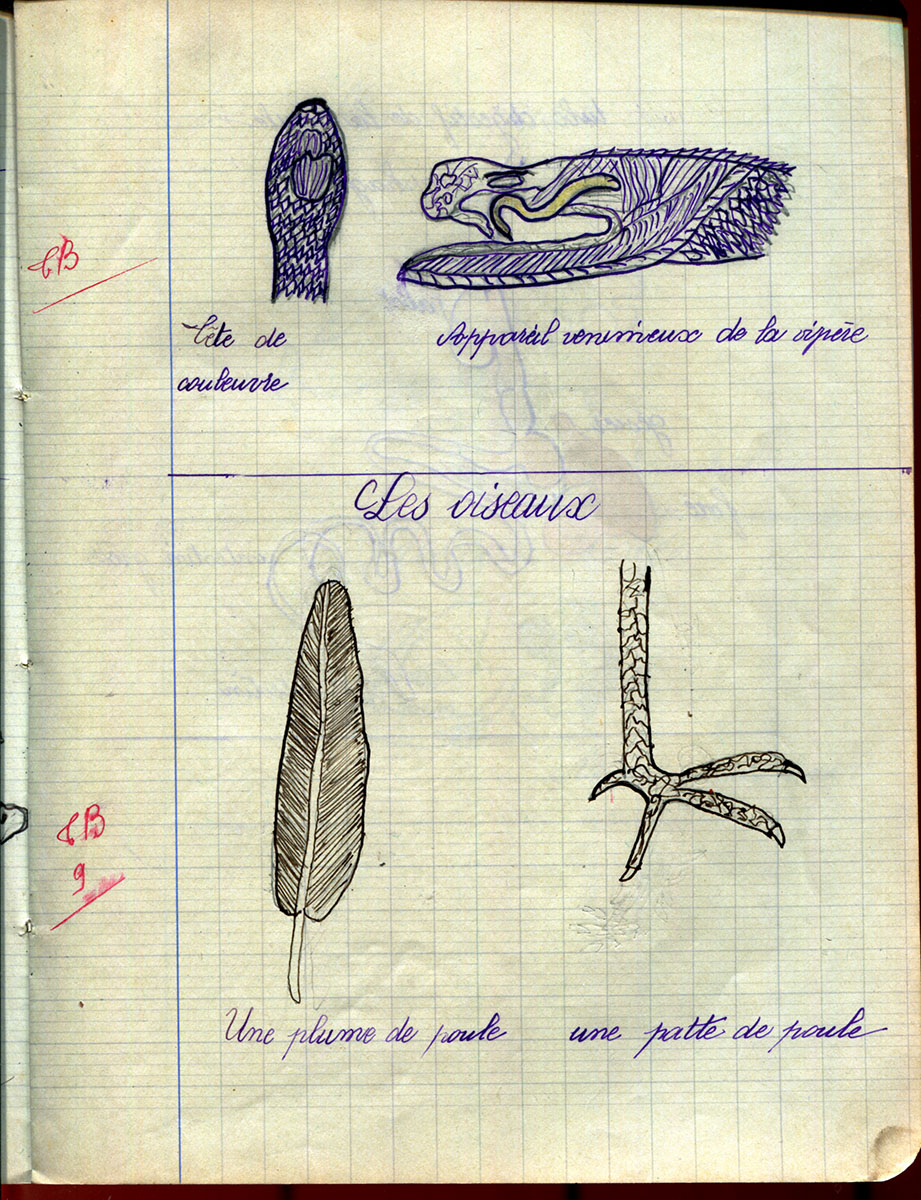 TB
Tête de
couleuvre
Appareil venimeux de la vipère
Les oiseaux
TB
9
Une plume de poule
une patte de poule